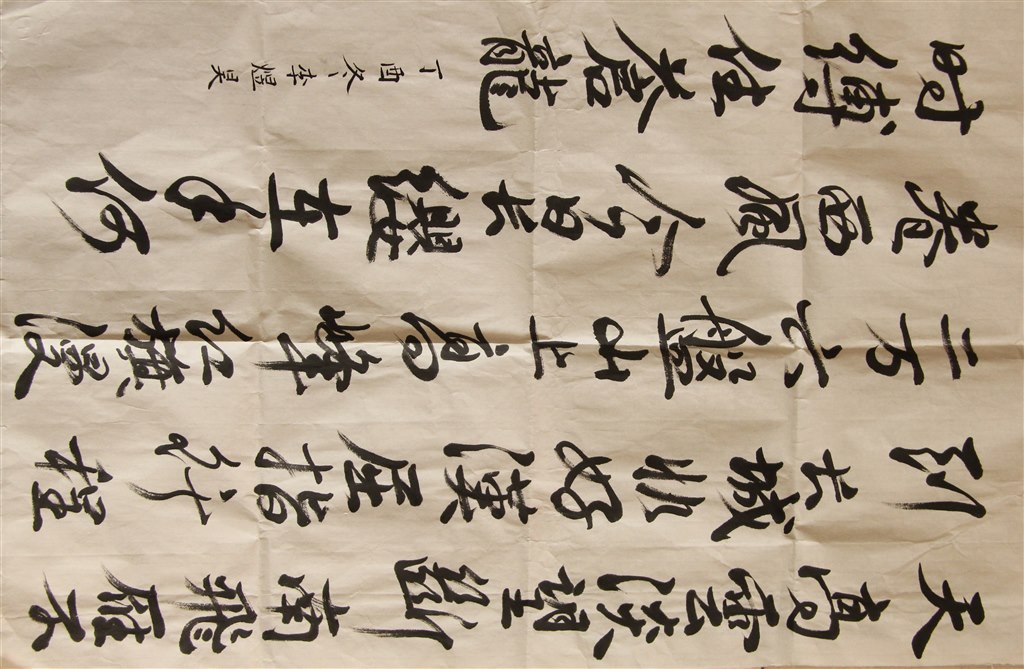 天高雲淡望斷南飛雁不
到长城非好漢屈指行程
二万六盤山上高峰红旗漫
卷西風今日长缨在手何
时缚住蒼龍
丁酉冬、李煜昊